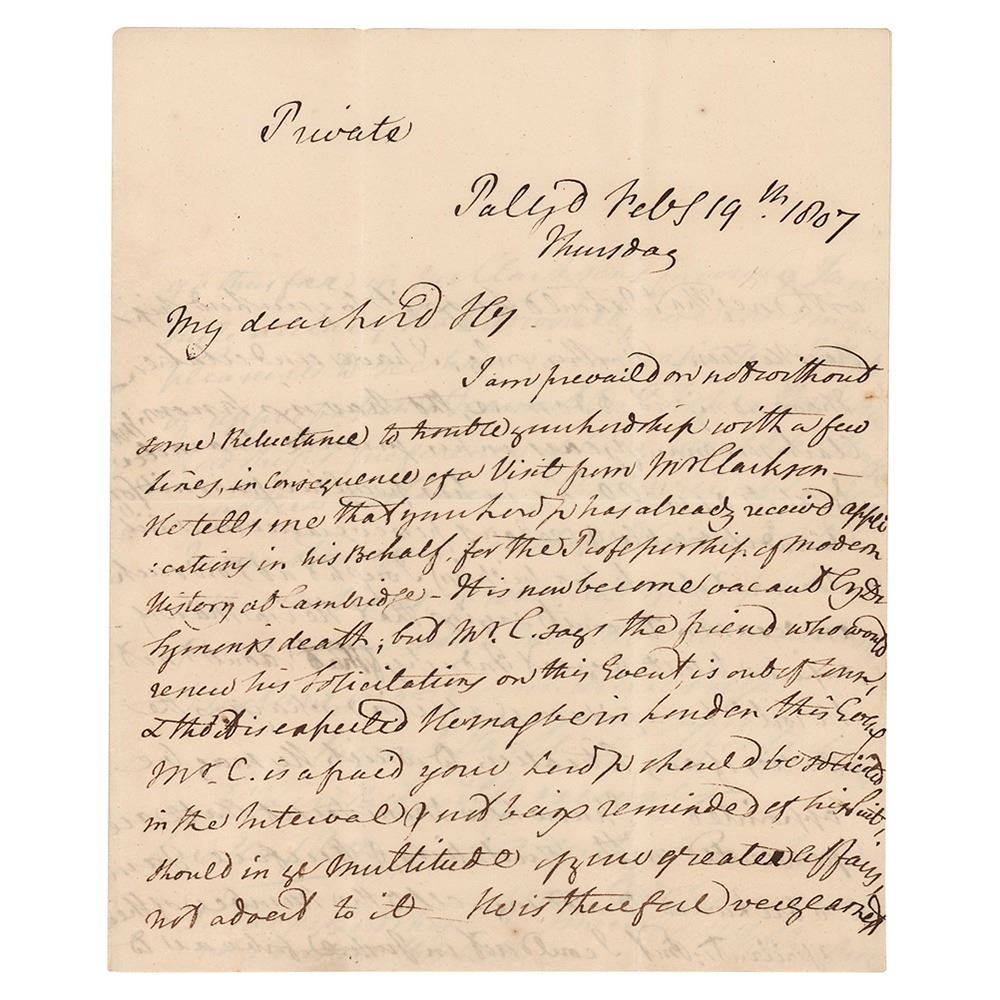 Private
Pal: yd Feby 19th. 1807
Thursday
My dear Lord Hy
I am prevaild on not without
some Reluctance to trouble your Lordship with a few
Lines, in Consequence of a Visit from Mr Clarkson—
He tells me that your Lordp has already receiv'd appli
:cations in his Behalf, for the Professorship of Modern
History at Cambridge – It is now become vacant by Dr
Symonds death; but Mr. C. says the friend who would
renew his Solicitations on this Event, is out of Town,
& tho' it is expected He may be in London this Eveng
Mr. C. is afraid your Lordp should be solicited
in the Interval & not being reminded of his Suit,
should in ye Multitude of your greater Affairs,
not advert to it — He is therefore very earnest